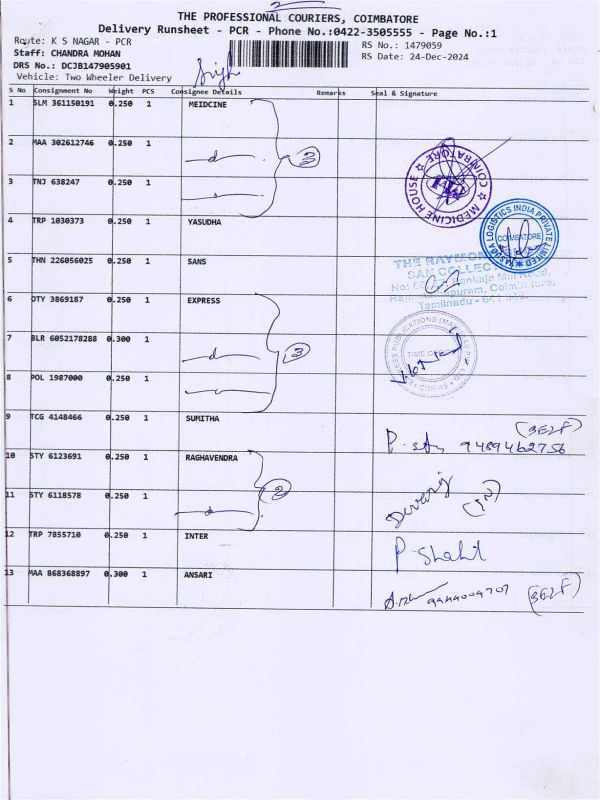 2
THE PROFESSIONAL COURIERS, COIMBATORE
Delivery Runsheet - PCR - Phone No.:0422-3505555 - Page No.:1
Route: K S NAGAR - PCR RS No.: 1479059
Staff: CHANDRA MOHAN RS Date: 24-Dec-2024
DRS No.: DCJB147905901
Vehicle: Two Wheeler Delivery
S No Consignment No Weight PCS Consignee Details Remarks Seal & Signature
1 SLM 361150191 0.250 1 MEIDCINE
2 MAA 302612746 0.250 1 3
3 TNJ 638247 0.250 1
MEDICINE HOUSE COIMBATORE
4 TRP 1030373 0.250 1 YASUDHA
LOGISTICS INDIA PRIVATE LIMITED COIMBATORE
5 THN 226056025 0.250 1 SANS
THE RAYMOND
SAN COLLEC
Tamilnadu
6 DTY 3869187 0.250 1 EXPRESS
7 BLR 6052178288 0.300 1 3
PUBLICATIONS
TIME OF
8 POL 1987000 0.250 1
9 TCG 4148466 0.250 1 SUMITHA
(SELF)
9489462756
10 STY 6123691 0.250 1 RAGHAVENDRA
11 STY 6118578 0.250 1 2
12 TRP 7855710 0.250 1 INTER
13 MAA 868368897 0.300 1 ANSARI
(SELF)